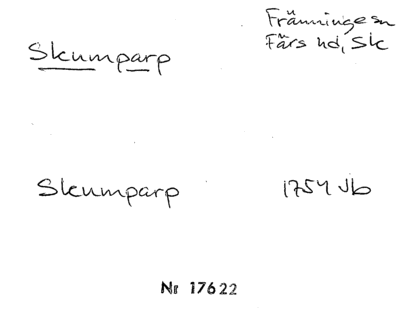 Skumparp
Främninge sn
Färs hd, Sk
Skumparp
1754 Jb
Nr 17622